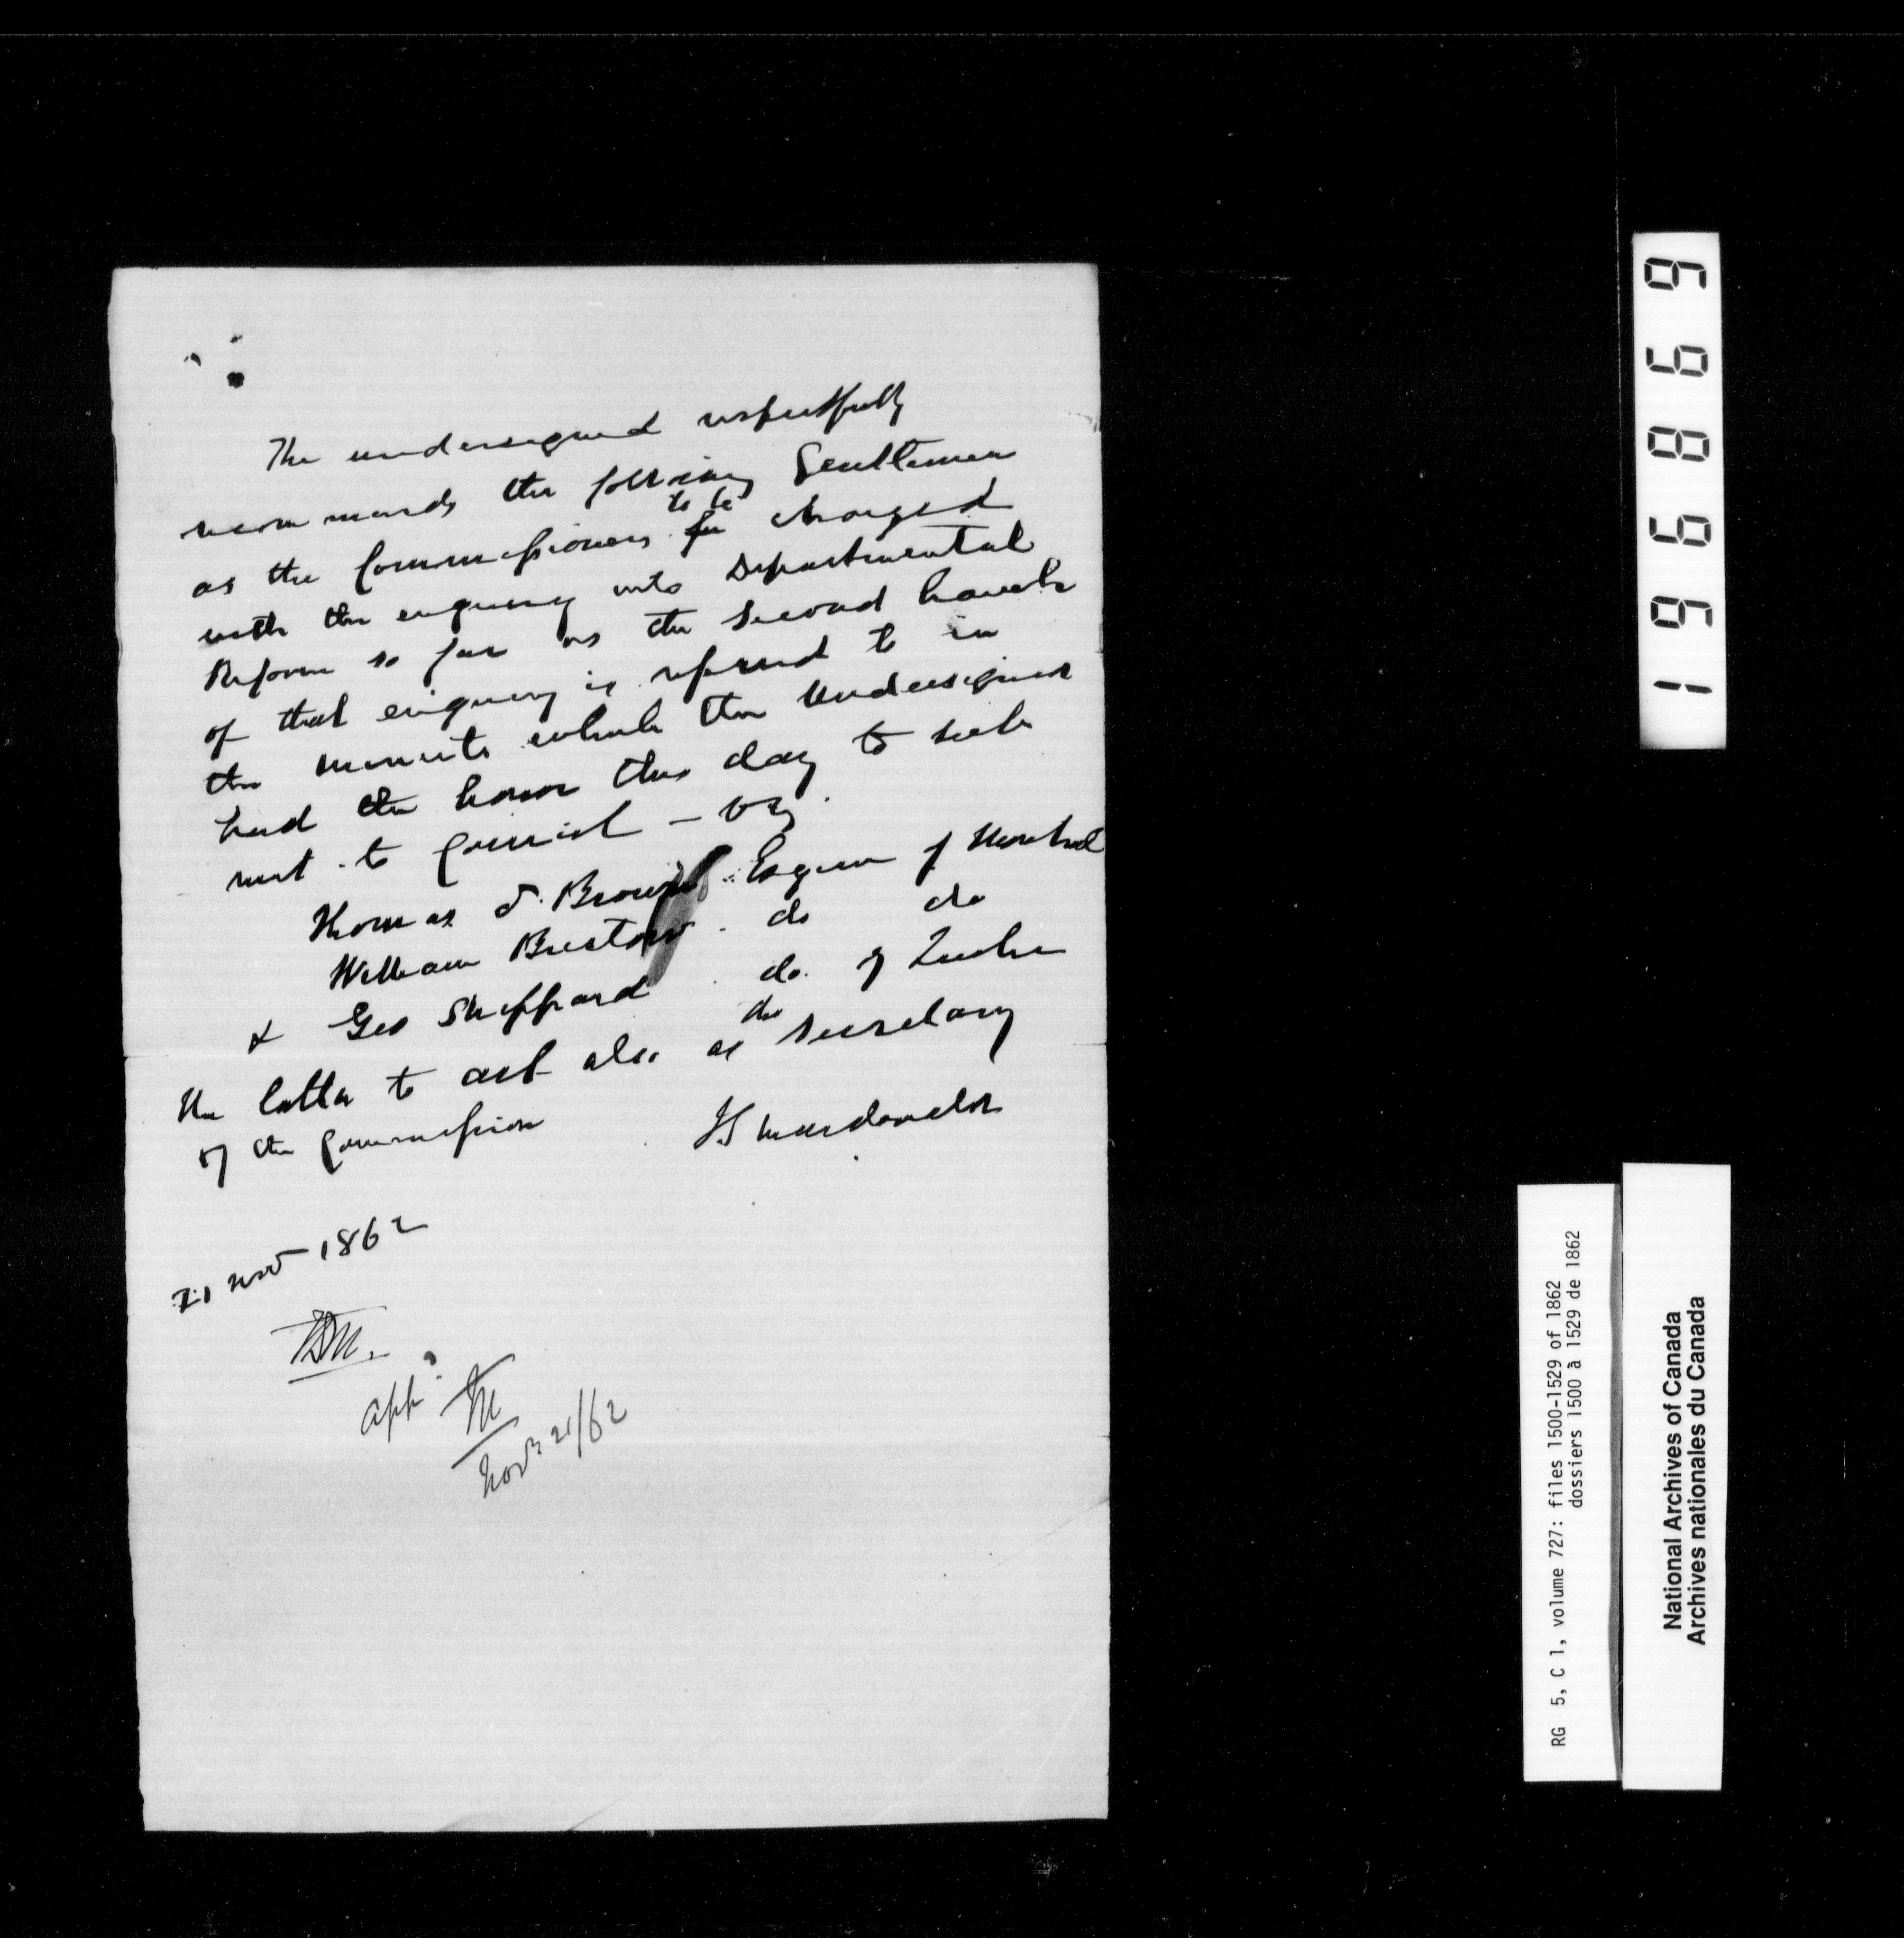 The undersigned respectfully
recommends the following Gentlemen
as the Commissioners to be charged
with the enquiry into Departmental
Reform so far as the second branch
of that enquiry is referred to in
the minute which the Undersigned
had the honor this day to sub
mit to Council – viz.
Thomas S. Brown Esquire of Montreal
William Bristow do do
& Geo Sheppard do. of Quebec
the latter to act also as the Secretary
of the Commission
JS Macdonald
21 Nov 1862
App^d M
Nov^r 21/62
196869
RG 5, C 1, volume 727: files 1500-1529 of 1862
dossiers 1500 à 1529 de 1862
National Archives of Canada
Archives nationales du Canada